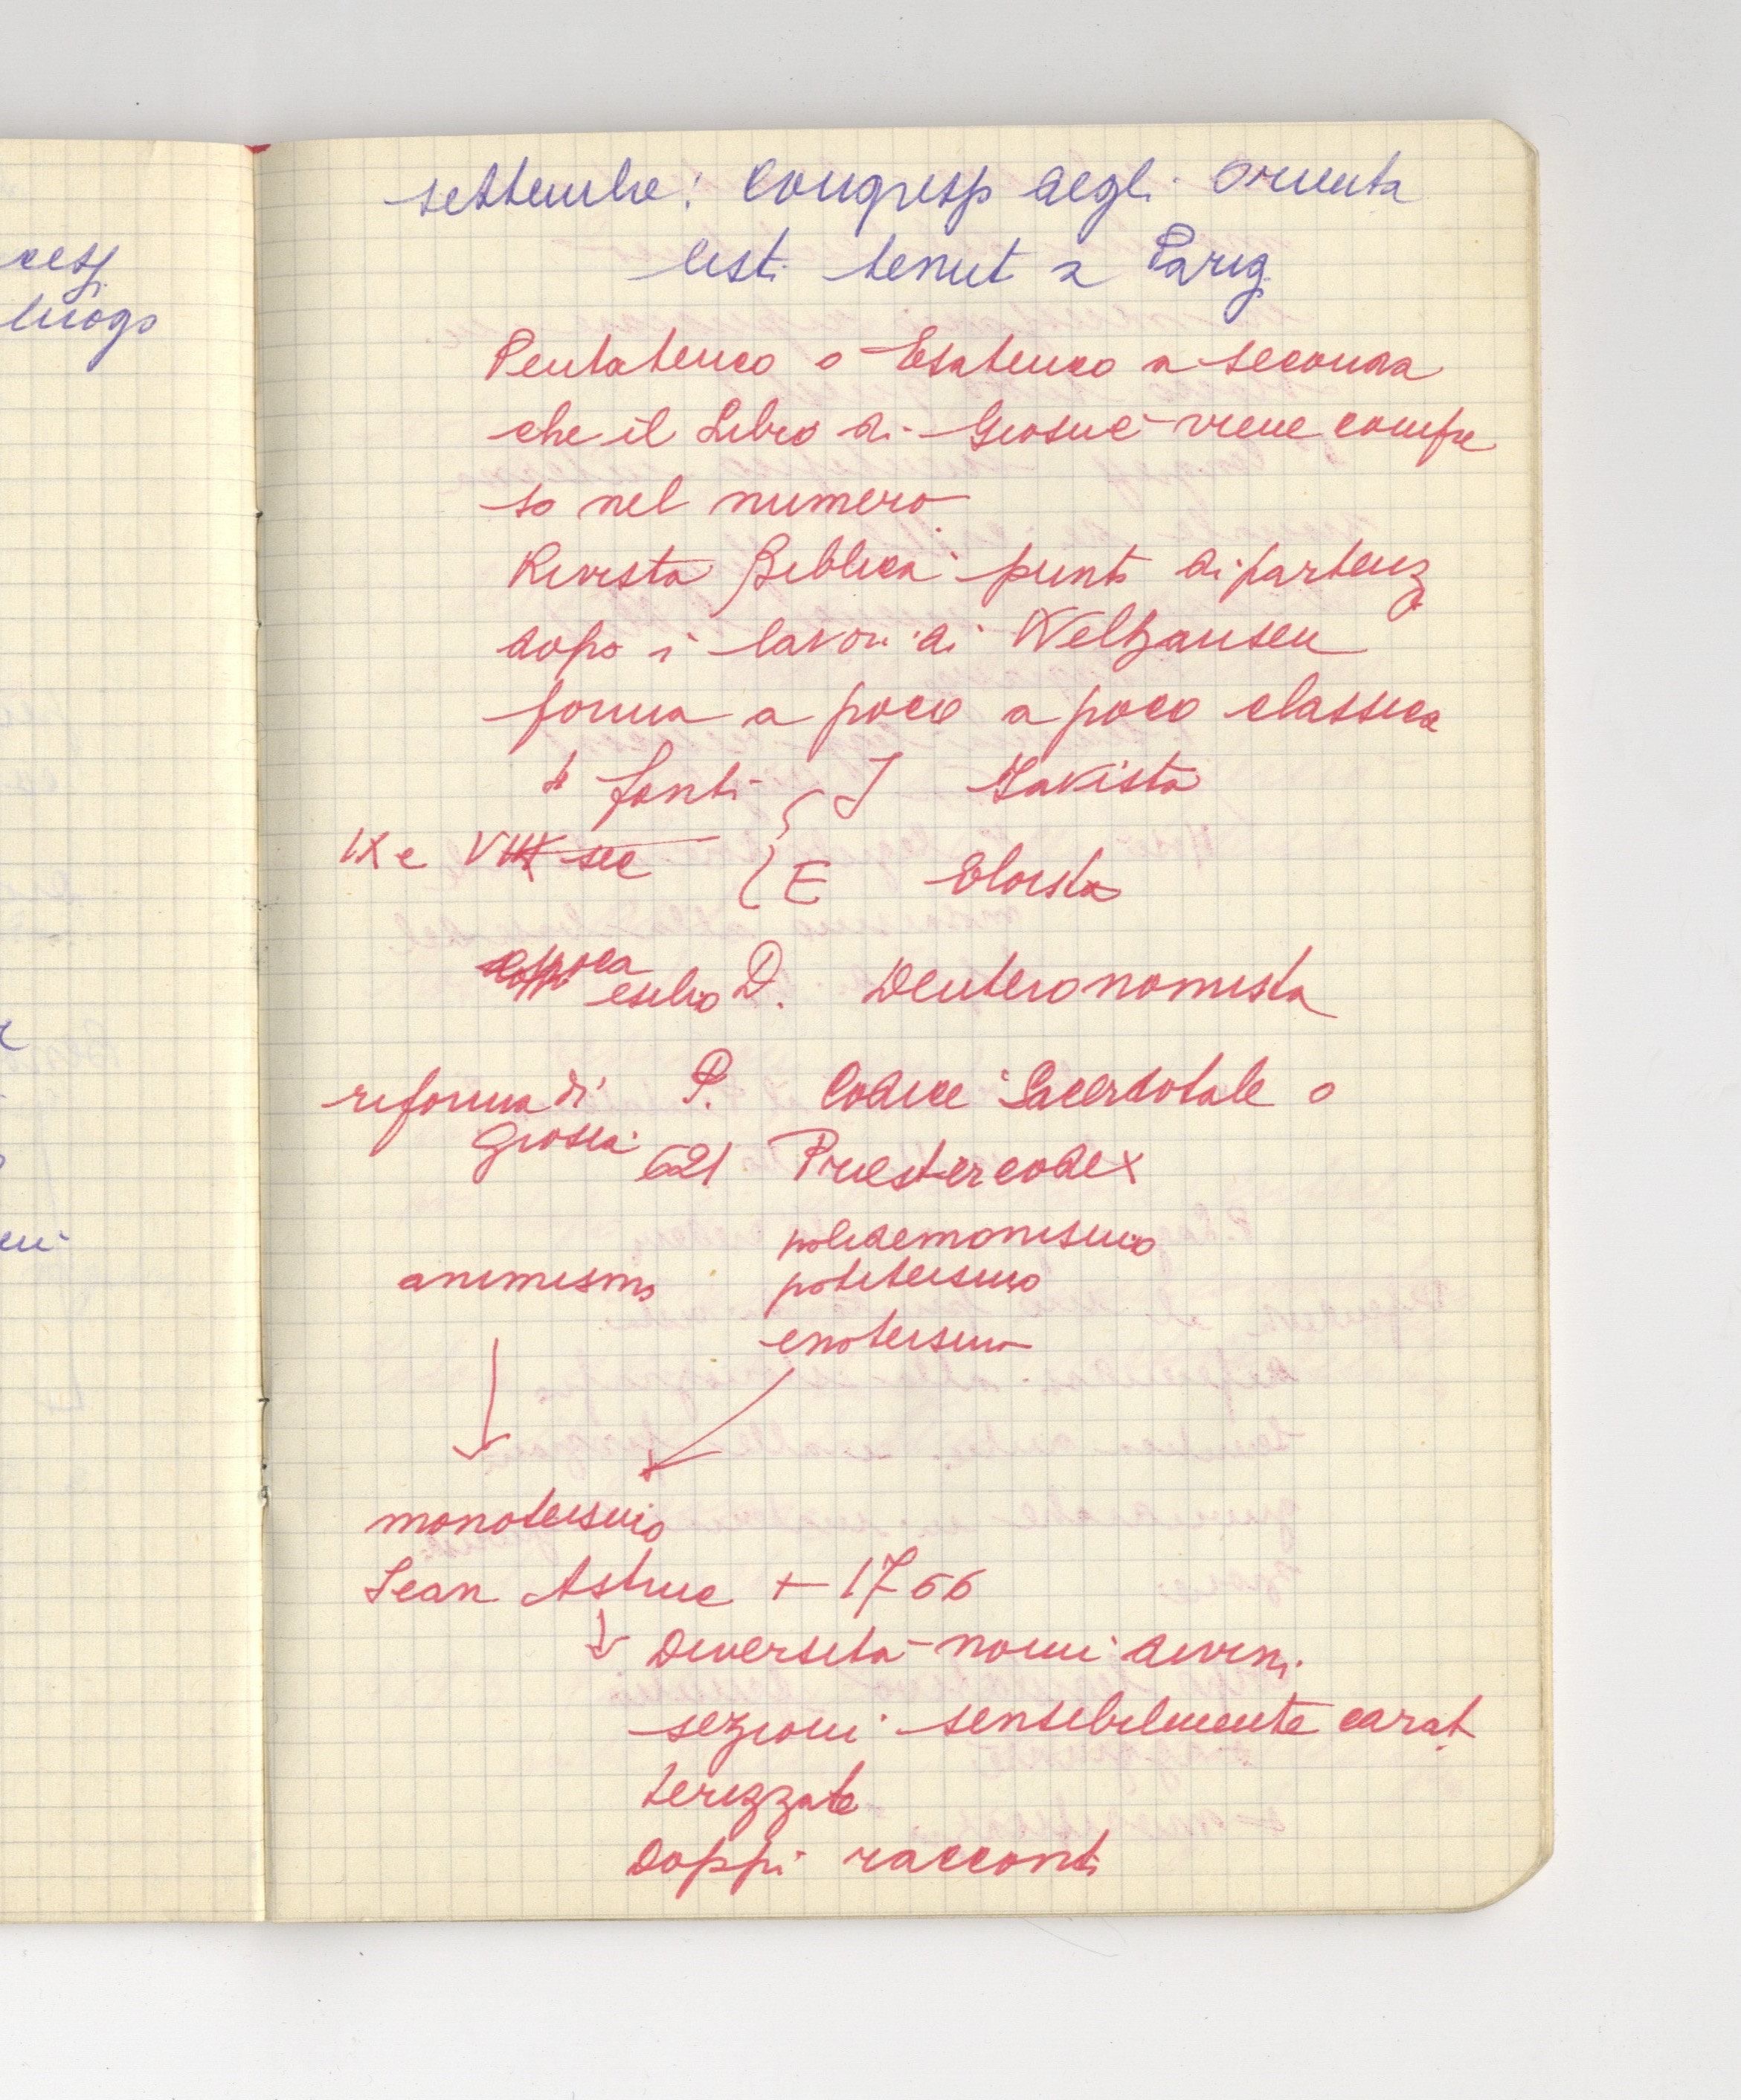 cess
luogo
settembre: Congresso degli Orienta
listi tenut a Parig
Pentateuco o Esateuco a seconda
che il Libro di Giosuè viene compre
so nel numero
Rivista Biblica punto di partenz
dopo i lavori di Welhausen
forma a poco a poco classica
4 fonti { J Javista
IX e VIII sec { E Eloista
epoca
esilio D. Deuteronomista
riforma di P. Codice Sacerdotale o
Giosia 621 Priestercodex
polidemonismo
animismo politeismo
enoteismo
monoteismo
Jean Astruc + 1766
↓ Diversità nomi divini
sezioni sensibilmente carat
terizzate
Doppi racconti